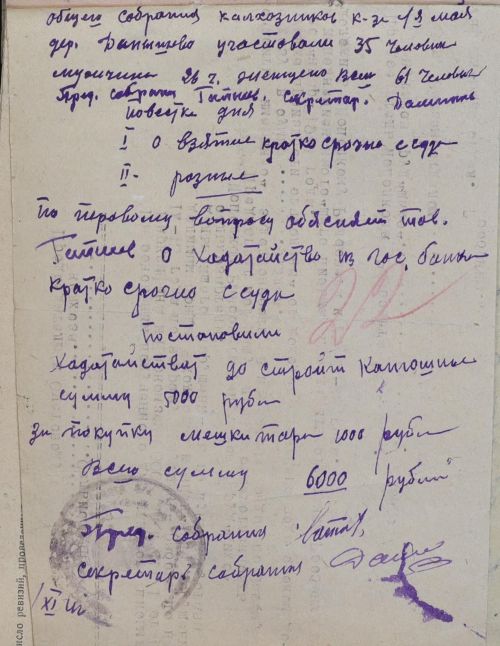 общего собрания калхозников к-за 1й мая
дер. участовали 35 Человик
мужчина 26 ч. женщено Всего 61 Человик
Пред. собрания Гатиев. секретар.
повестка дня
I о взятие кратко срочно ссуда
II - разные
По перовому вопросу обяснял тов.
Гатиев о Хадатайство из гос. банка
кратко срочно ссуда
22
постановили
Хадатайстват до стройт
сумму 5000 рубли
За покупку мешки тара 1000 рубли
Всего сумму 6000 рубли
Пред. собрания
Секретарь собрания
XI
исло ревизий, провел